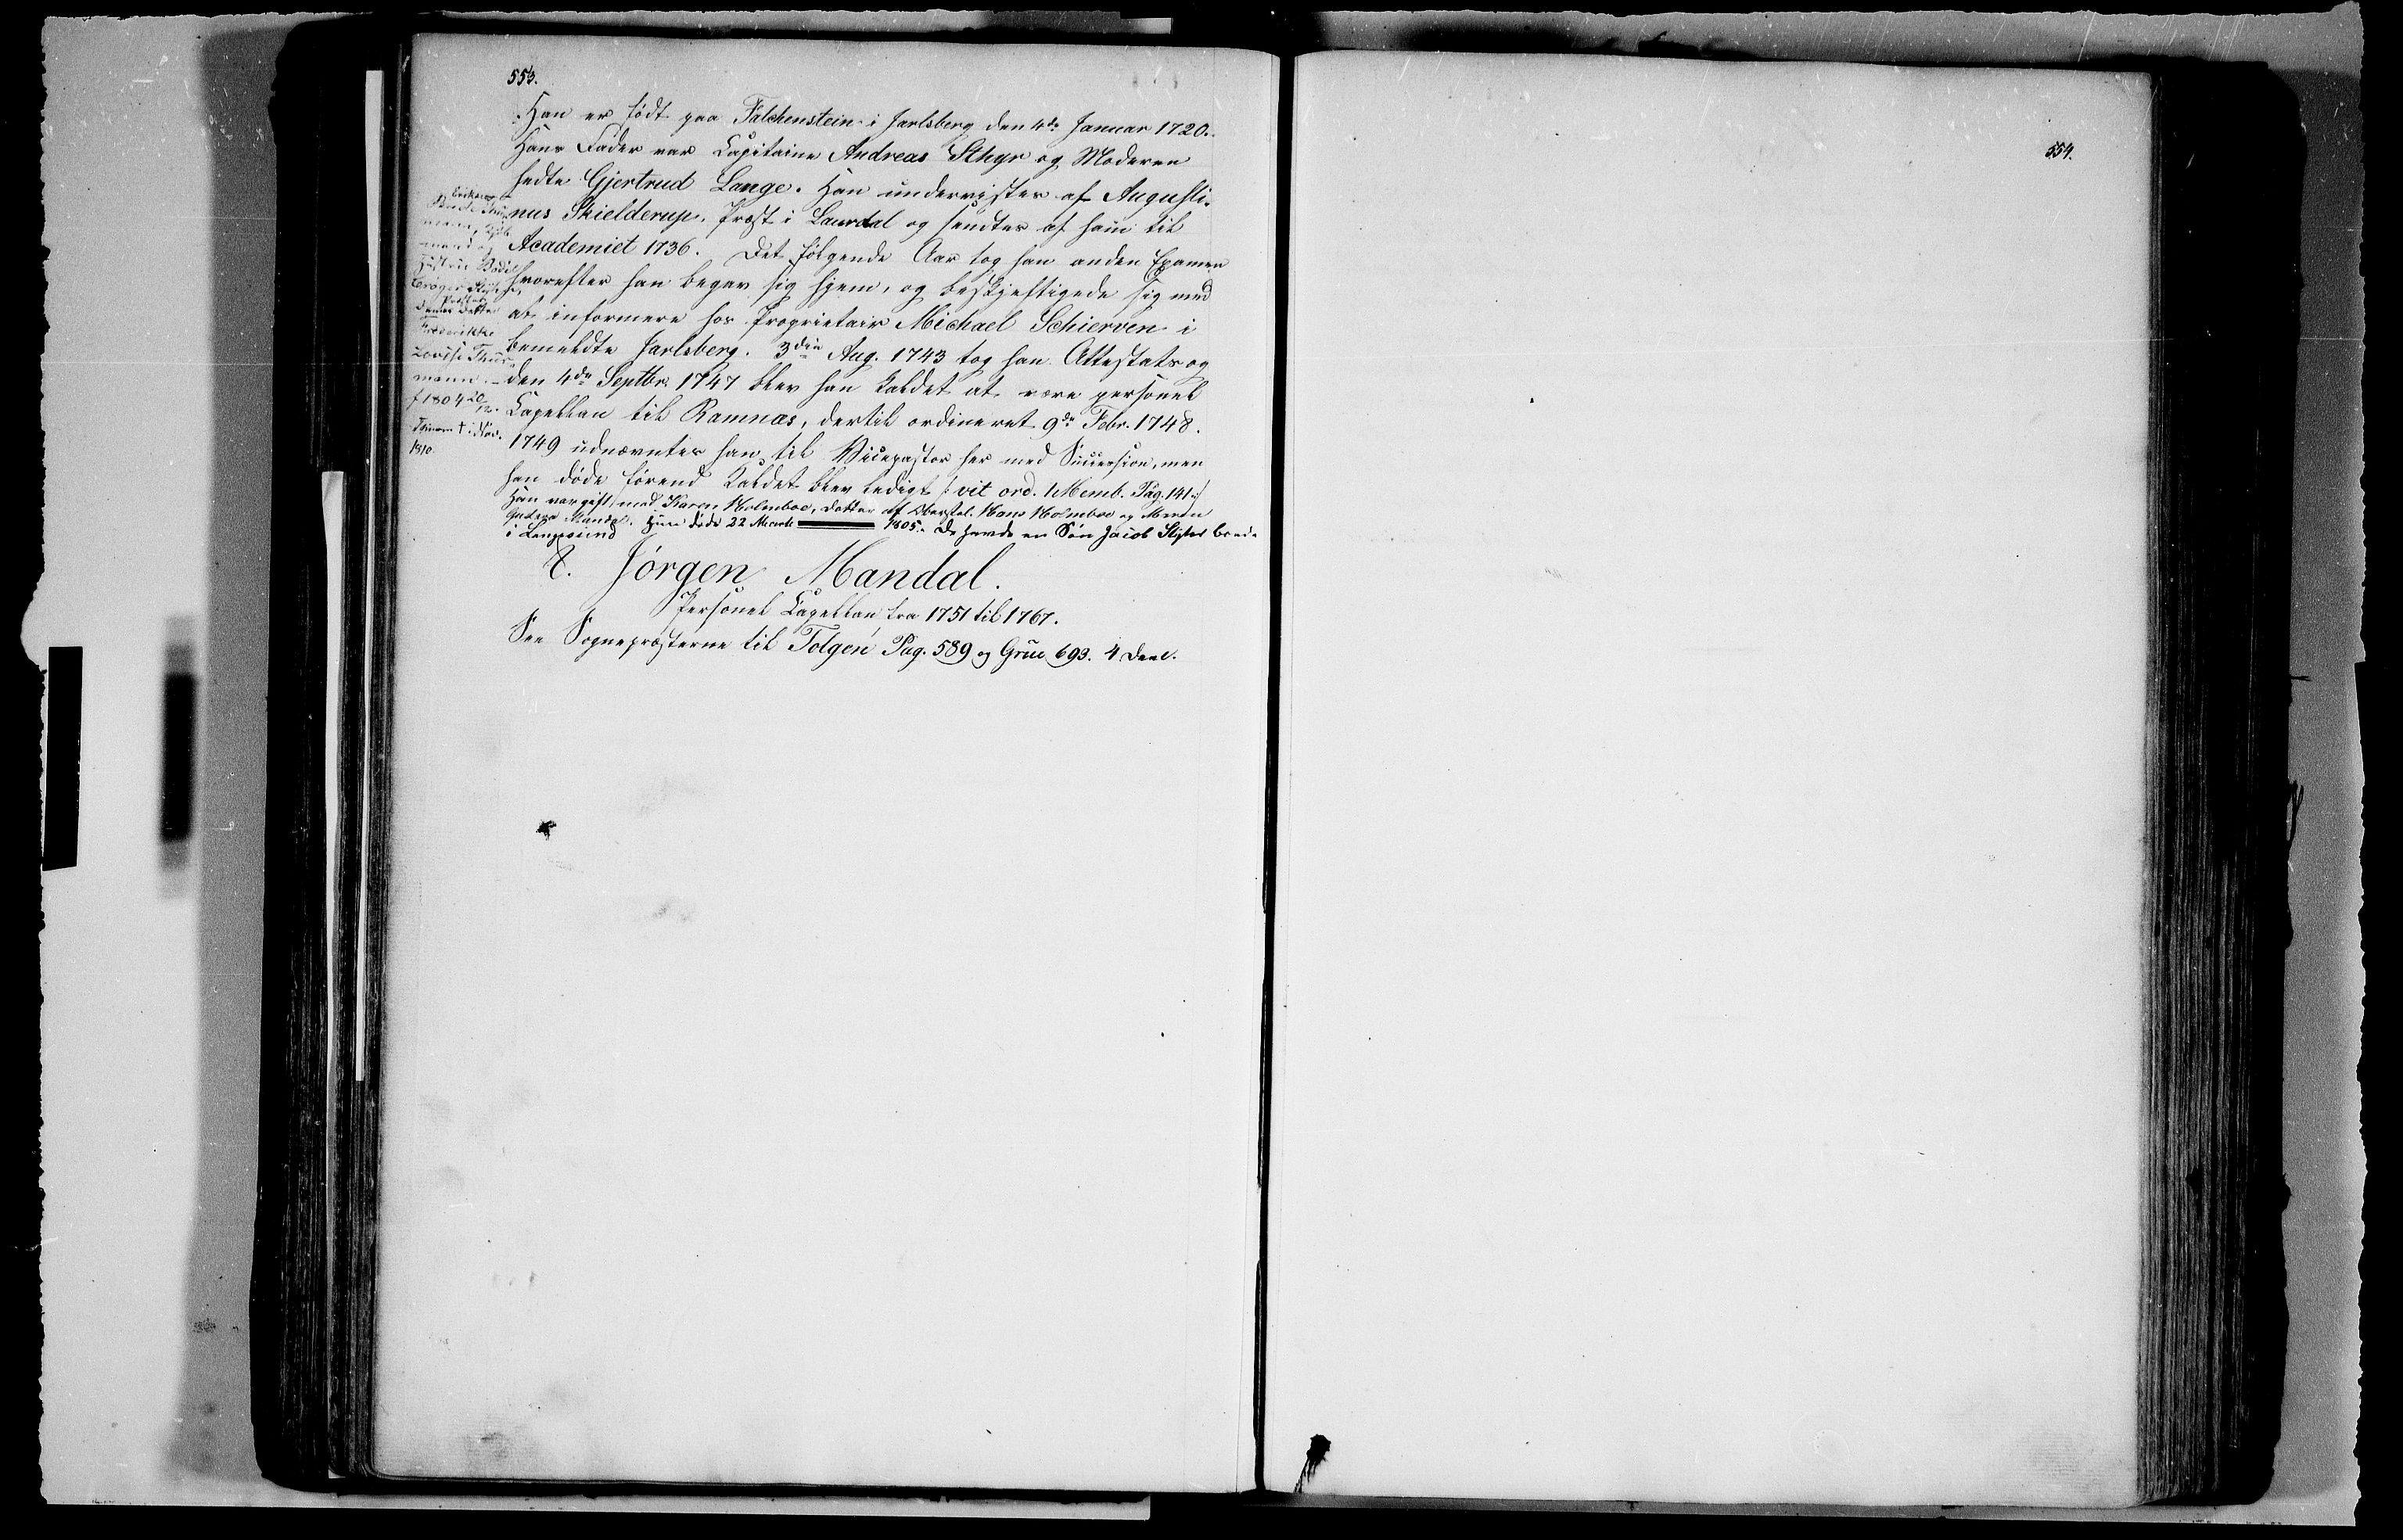 553.
Han er født paa Falchenstein i Jarlsberg den 4de Januar 1720.
Hans Fader var Capitaine Andreas Sthyr og Moderen
hedte Gjertrud Lange. Han undervistes af Augusti-
nus Skielderup, Præst i Laurdal og sendtes af ham til
Academiet 1736. Det følgende Aar tog han anden Examen
hvorefter han begav sig hjem, og beskjeftigede sig med
at informere hos Proprietair Michael Schierven i
bemeldte Jarlsberg. 3die Aug. 1743 tog han Attestats og
den 4de Septbr. 1747 blev han kaldet at være personel
Capellan til Ramnæs, dertil ordineret 9de Febr. 1748.
1749 udnævntes han til Vicepastor her med Succession, men
han døde førend Kaldet blev ledigt /: vit ord. 1 Memb. Pag. 141 :/
Han var gift med Karen Holmboe, Datter af Oberstl. Hans Holmboe og Maren
Mandal. Hun døde 22 Marts 1805. De havde en Søn Jacob Styhr
i Langesund
mand og
Hustrue Bodil
Frederikke
Lovise Thur-
mann.
† 1804 20/12.
† i Nov.
1810.
8. Jørgen Mandal.
Personel Capellan fra 1751 til 1767.
See Sognepræsterne til Tolgen Pag. 589 og Grue 693. 4 Deel.
554.